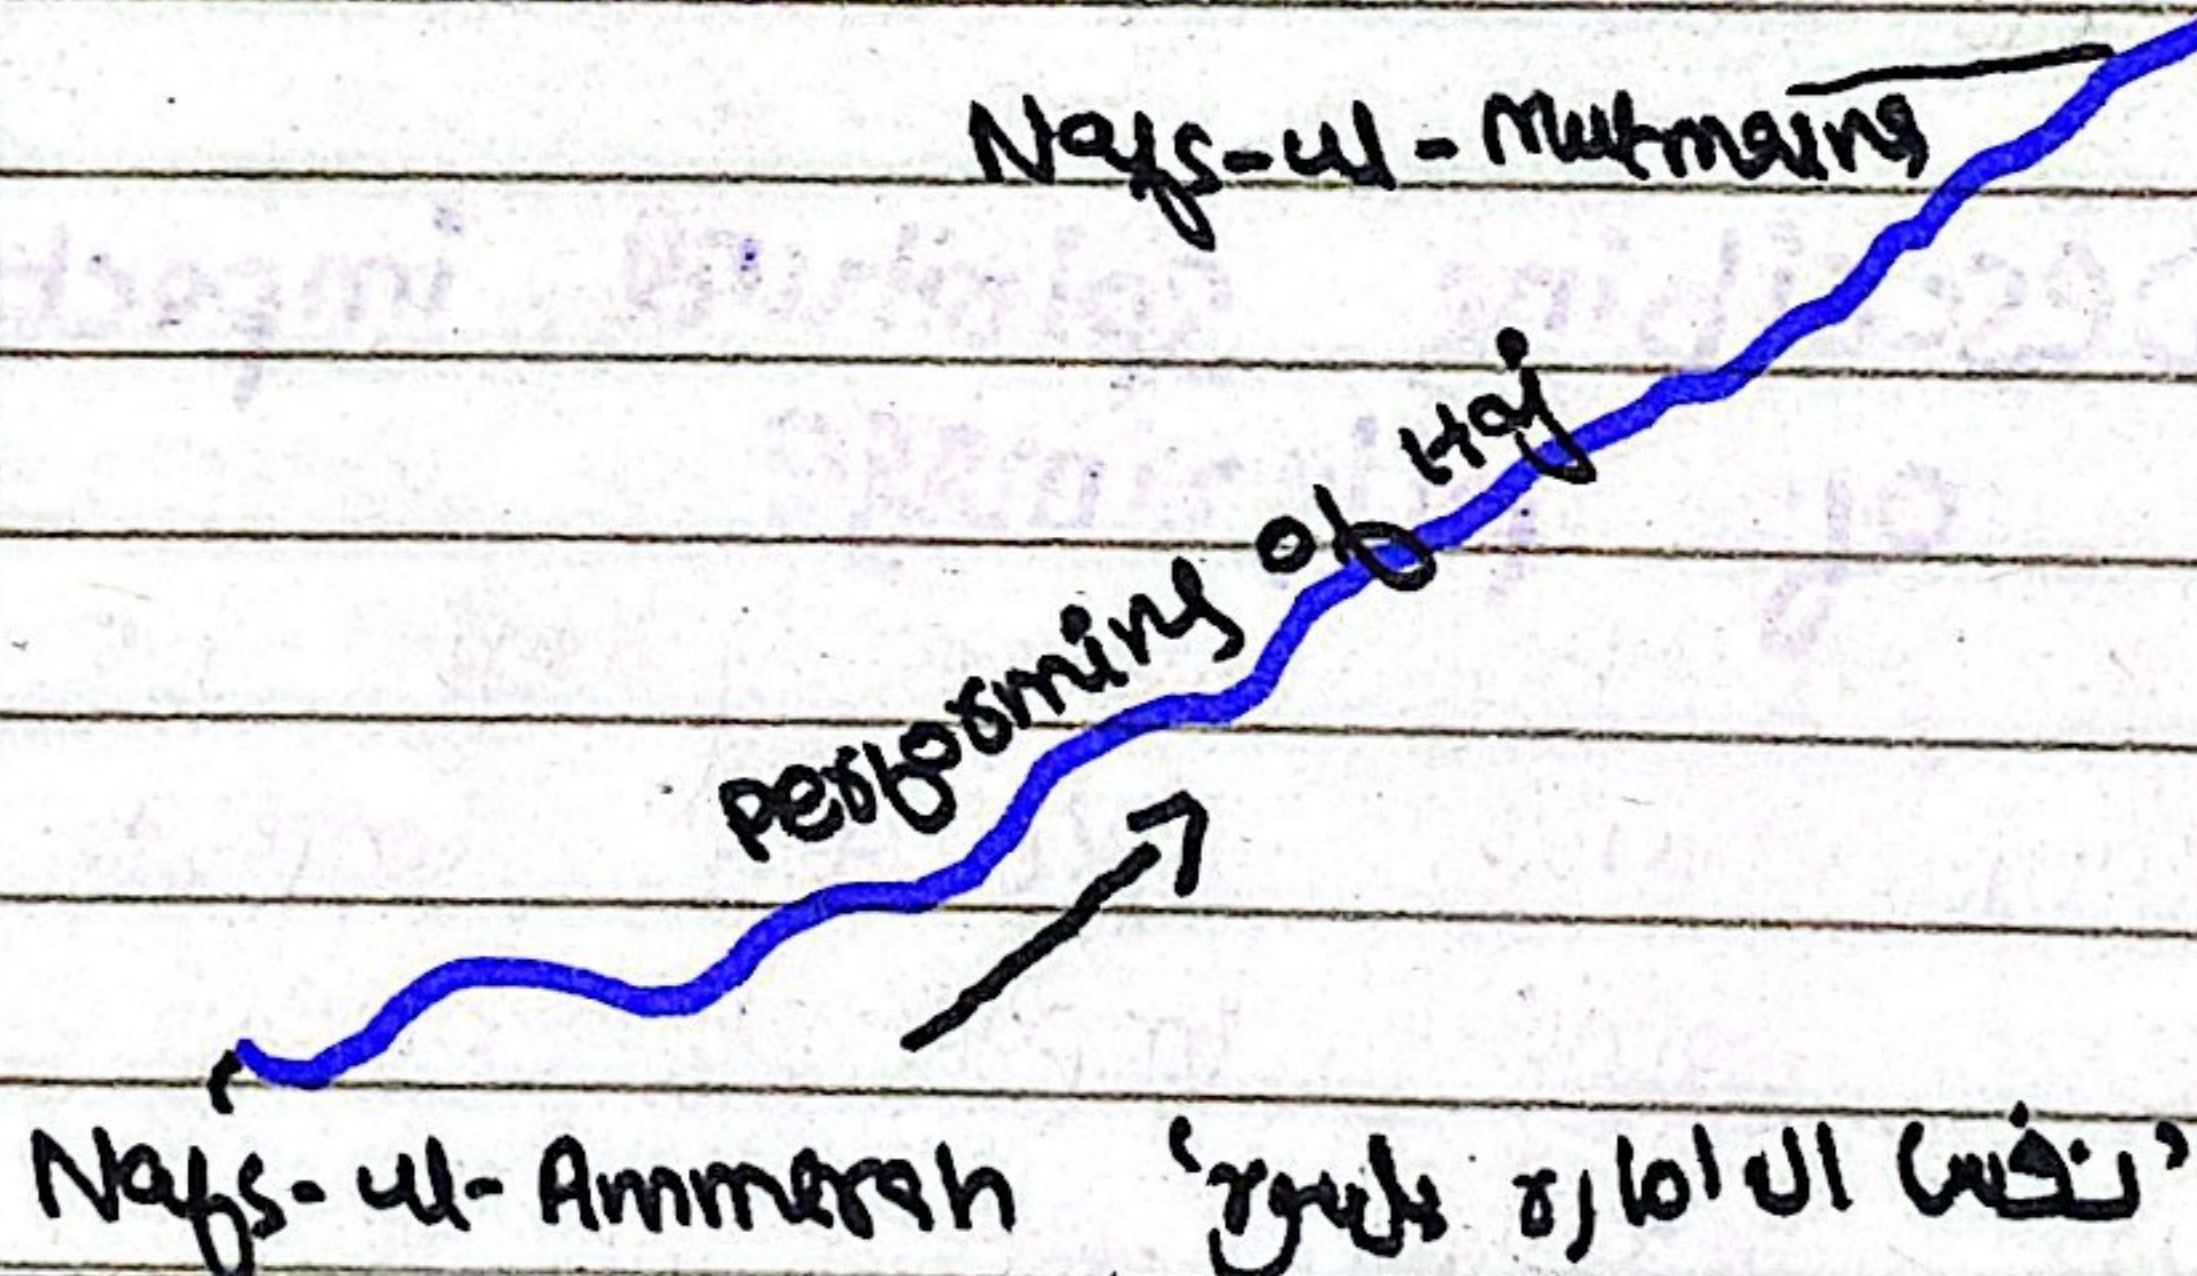 Nafs-ul-Mutmaina
performing of Haj
Nafs-ul-Ammarah ‘نفس ال امارہ’